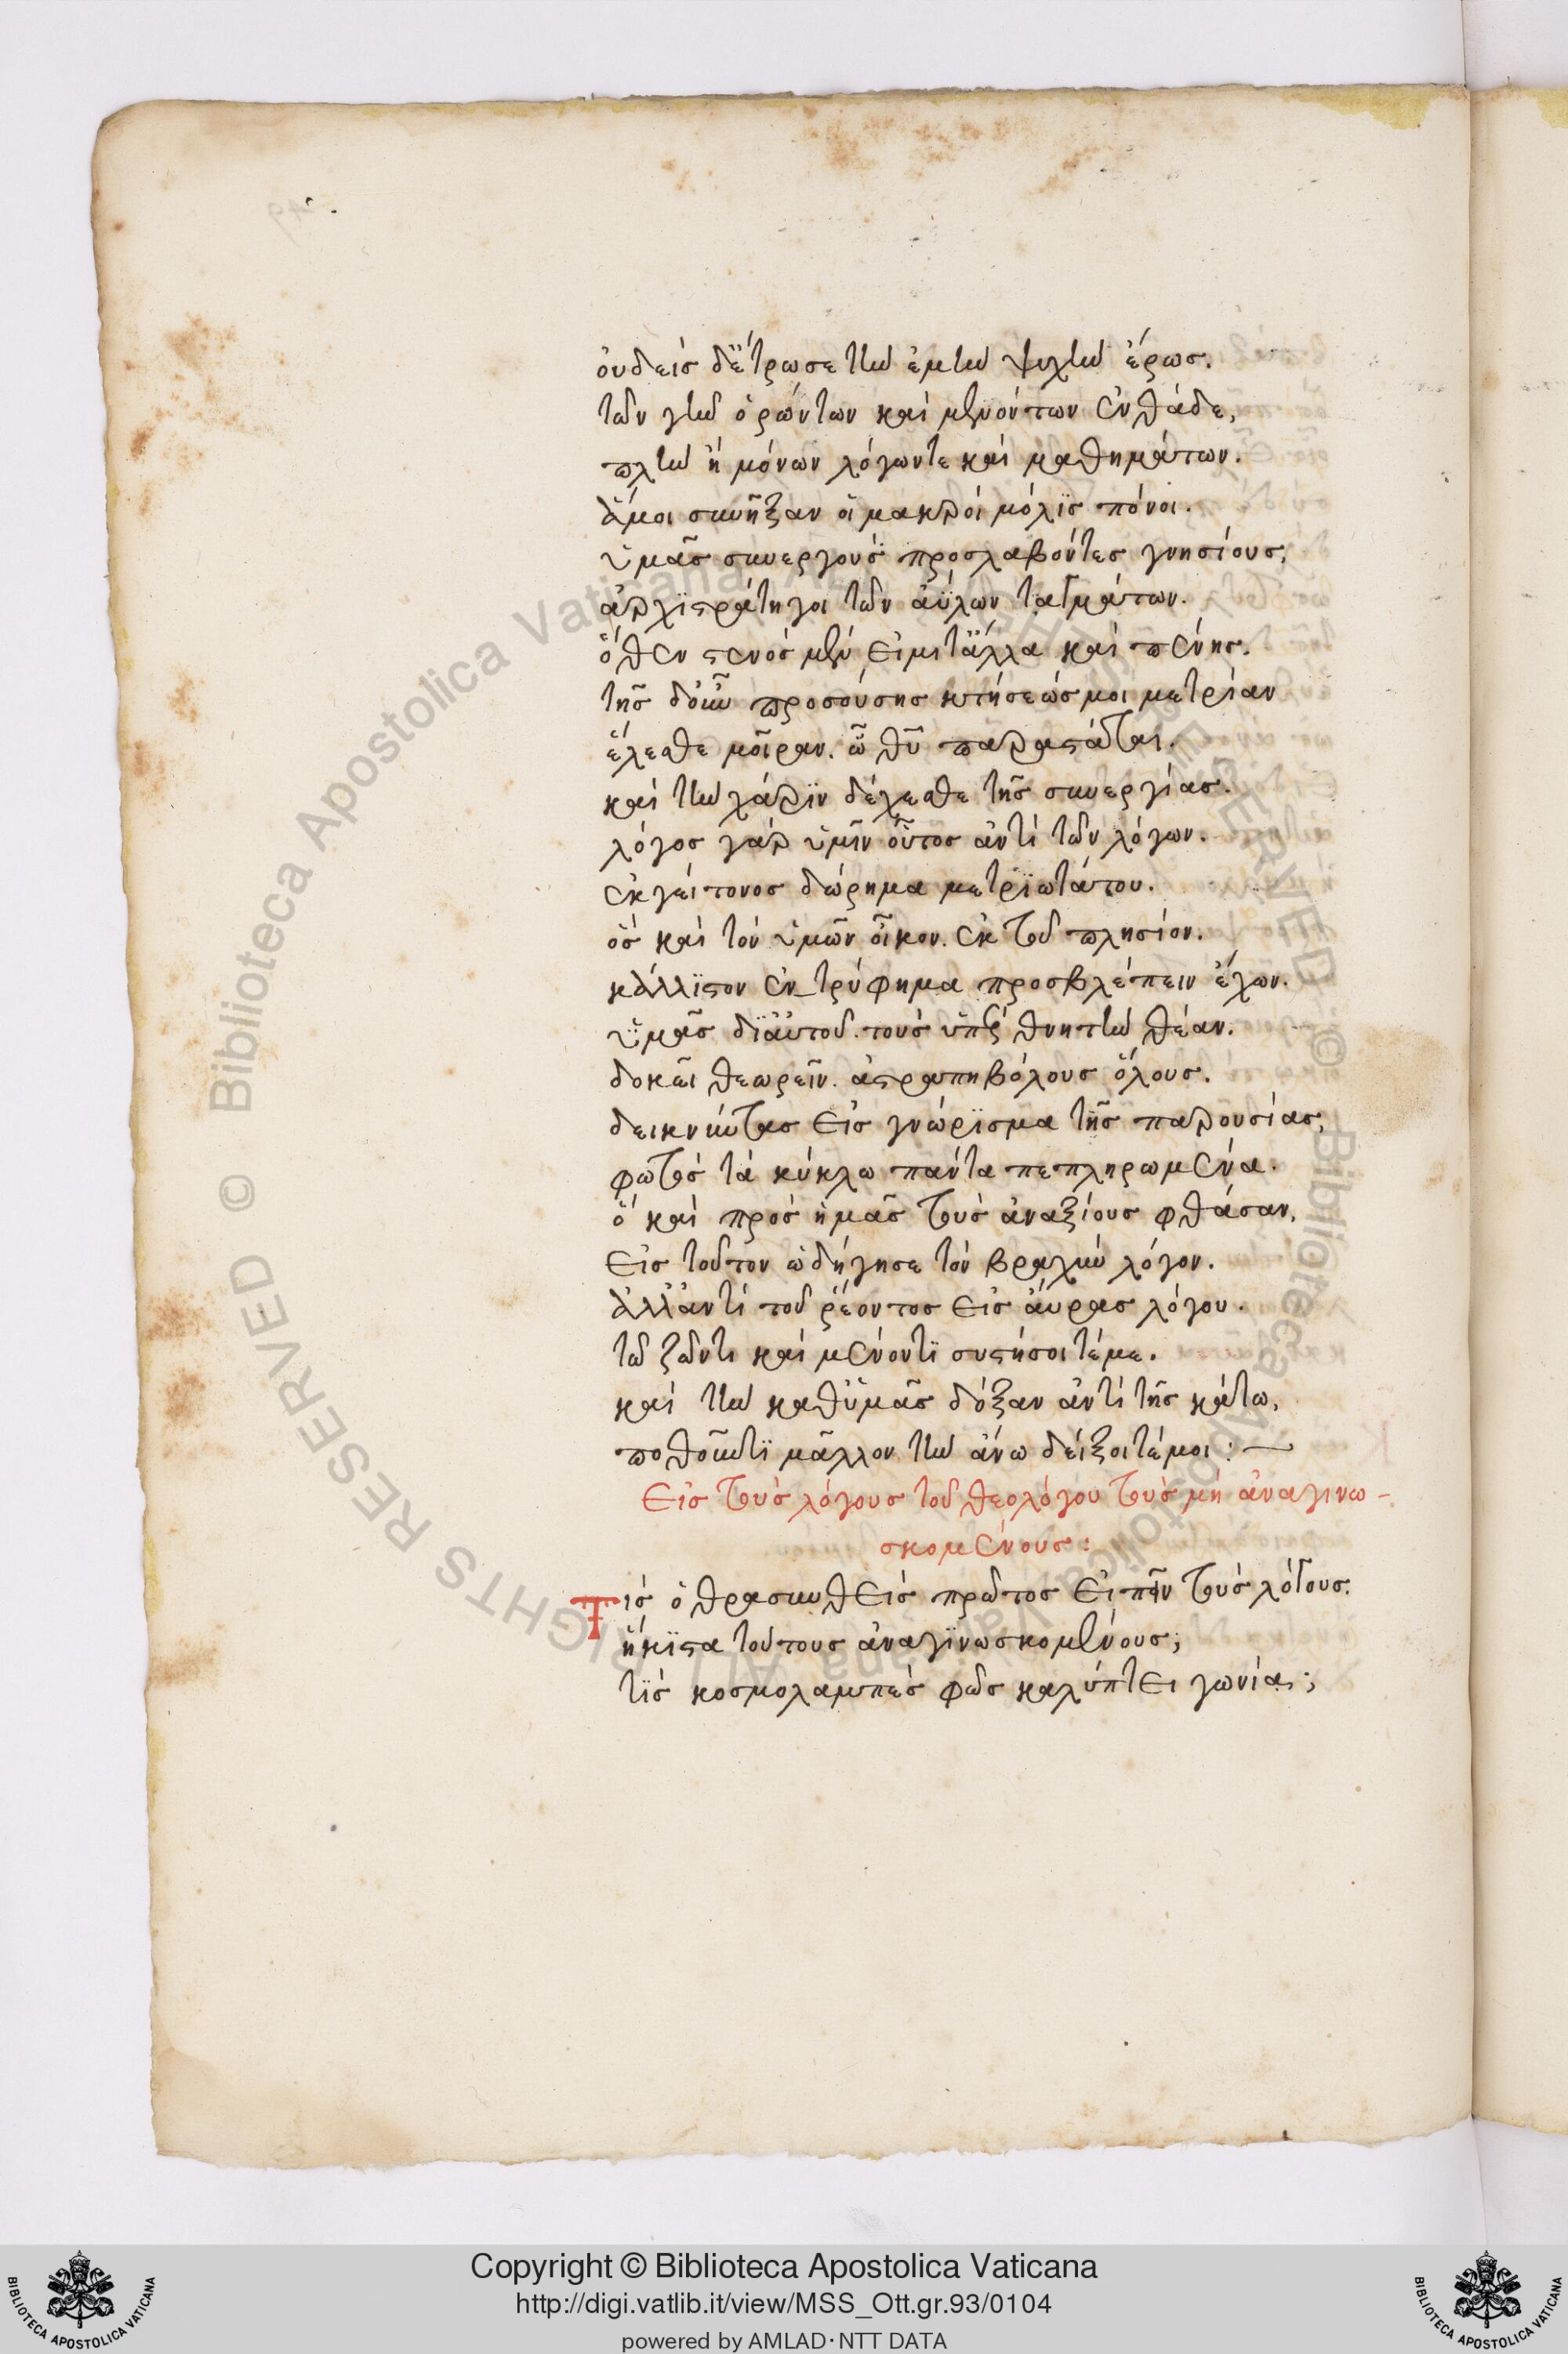 οὐδεὶς δἔτρωσε τὴν ἐμὴν ψυχὴν ἔρως.
τῶν γῆν ὁρώντων καὶ μενόντων ἐνθάδε,
πλὴν ἢ μόνων λόγωντε καὶ μαθημάτων.
ἅμοι συνῆξαν οἱ μακροὶ μόλϊς πόνοι.
ὑμᾶς συνεργοὺς προσλαβόντες γνησίους,
ἀρχϊστράτηγοι τῶν ἀΰλων ταγμάτων.
ὅθεν στενὸς μὲν εἰμι τἄλλα καὶ πένης.
τῆς δοὖν προσούσης κτήσεώς μοι μετρίαν
ἕλεσθε μοῖραν. ὦ θῦ παραστάται.
καὶ τὴν χάρϊν δέχεσθε τῆς συνεργίας.
λόγος γὰρ ὑμῖν οὗτος ἀντὶ τῶν λόγων.
ἐκ γείτονος δώρημα μετρϊωτάτου.
ὃς καὶ τὸν ὑμῶν οἶκον. ἐκ τοῦ πλησίον.
κάλλϊστον ἐντρύφημα προσβλέπειν ἔχων.
ὑμᾶς δϊαὐτοῦ. τοὺς ὑπὲρ θνητὴν θέαν.
δοκεῖ θεωρεῖν. ἀστραπηβόλους ὅλους.
δεικνύντας εἰς γνώρϊσμα τῆς παρουσίας,
φωτὸς τὰ κύκλω πάντα πεπληρωμένα.
ὃ καὶ πρὸς ἡμᾶς τοὺς ἀναξίους φθάσαν,
εἰς τοῦτον ὡδήγησε τὸν βραχὺν λόγον.
ἀλλἀντὶ τοῦ ῥέοντος εἰς αὔρας λόγου.
τῶ ζῶντι καὶ μένοντϊ συστήσοιτέμε.
καὶ τὴν καθὑμᾶς δόξαν ἀντὶ τῆς κάτω,
ποθοῦντϊ μᾶλλον τὴν ἄνω δείξοιτέμοι :—
Εἰς τοὺς λόγους τοῦ θεολόγου τοὺς μὴ ἀναγινω-
σκομένους :
Τὶς ὁ θρασυνθεὶς πρῶτος εἰπεῖν τοὺς λόγους.
ἥκϊστα τούτους ἀναγϊνωσκομένους;
τῒς κοσμολαμπὲς φῶς καλύπτει γωνία;
Copyright © Biblioteca Apostolica Vaticana
http://digi.vatlib.it/view/MSS_Ott.gr.93/0104
powered by AMLAD·NTT DATA